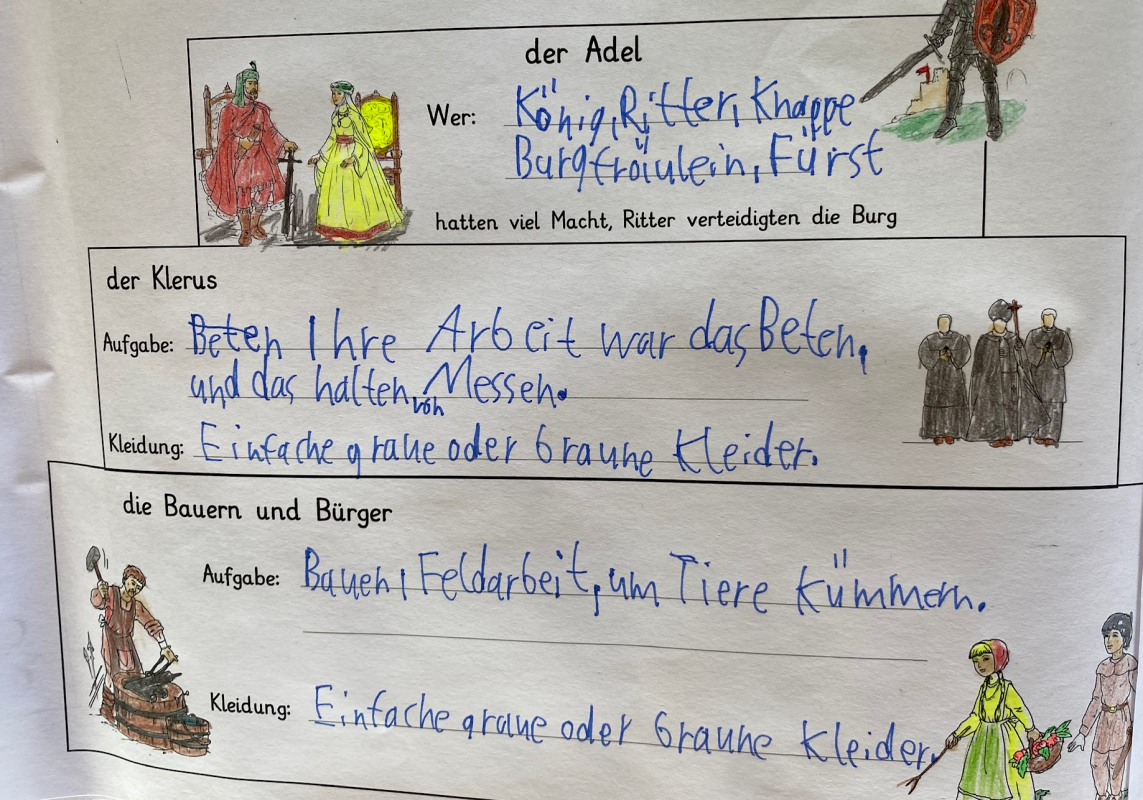 der Adel
Wer: König, Ritter, Knappe
Burgfröiulein, Fürst
hatten viel Macht, Ritter verteidigten die Burg
der Klerus
Aufgabe: Beten Ihre Arbeit war das Beten,
und das halten von Messen.
Kleidung: Einfache graue oder braune Kleider.
die Bauern und Bürger
Aufgabe: Bauen, Feldarbeit, um Tiere kümmern.
Kleidung: Einfache graue oder braune Kleider.